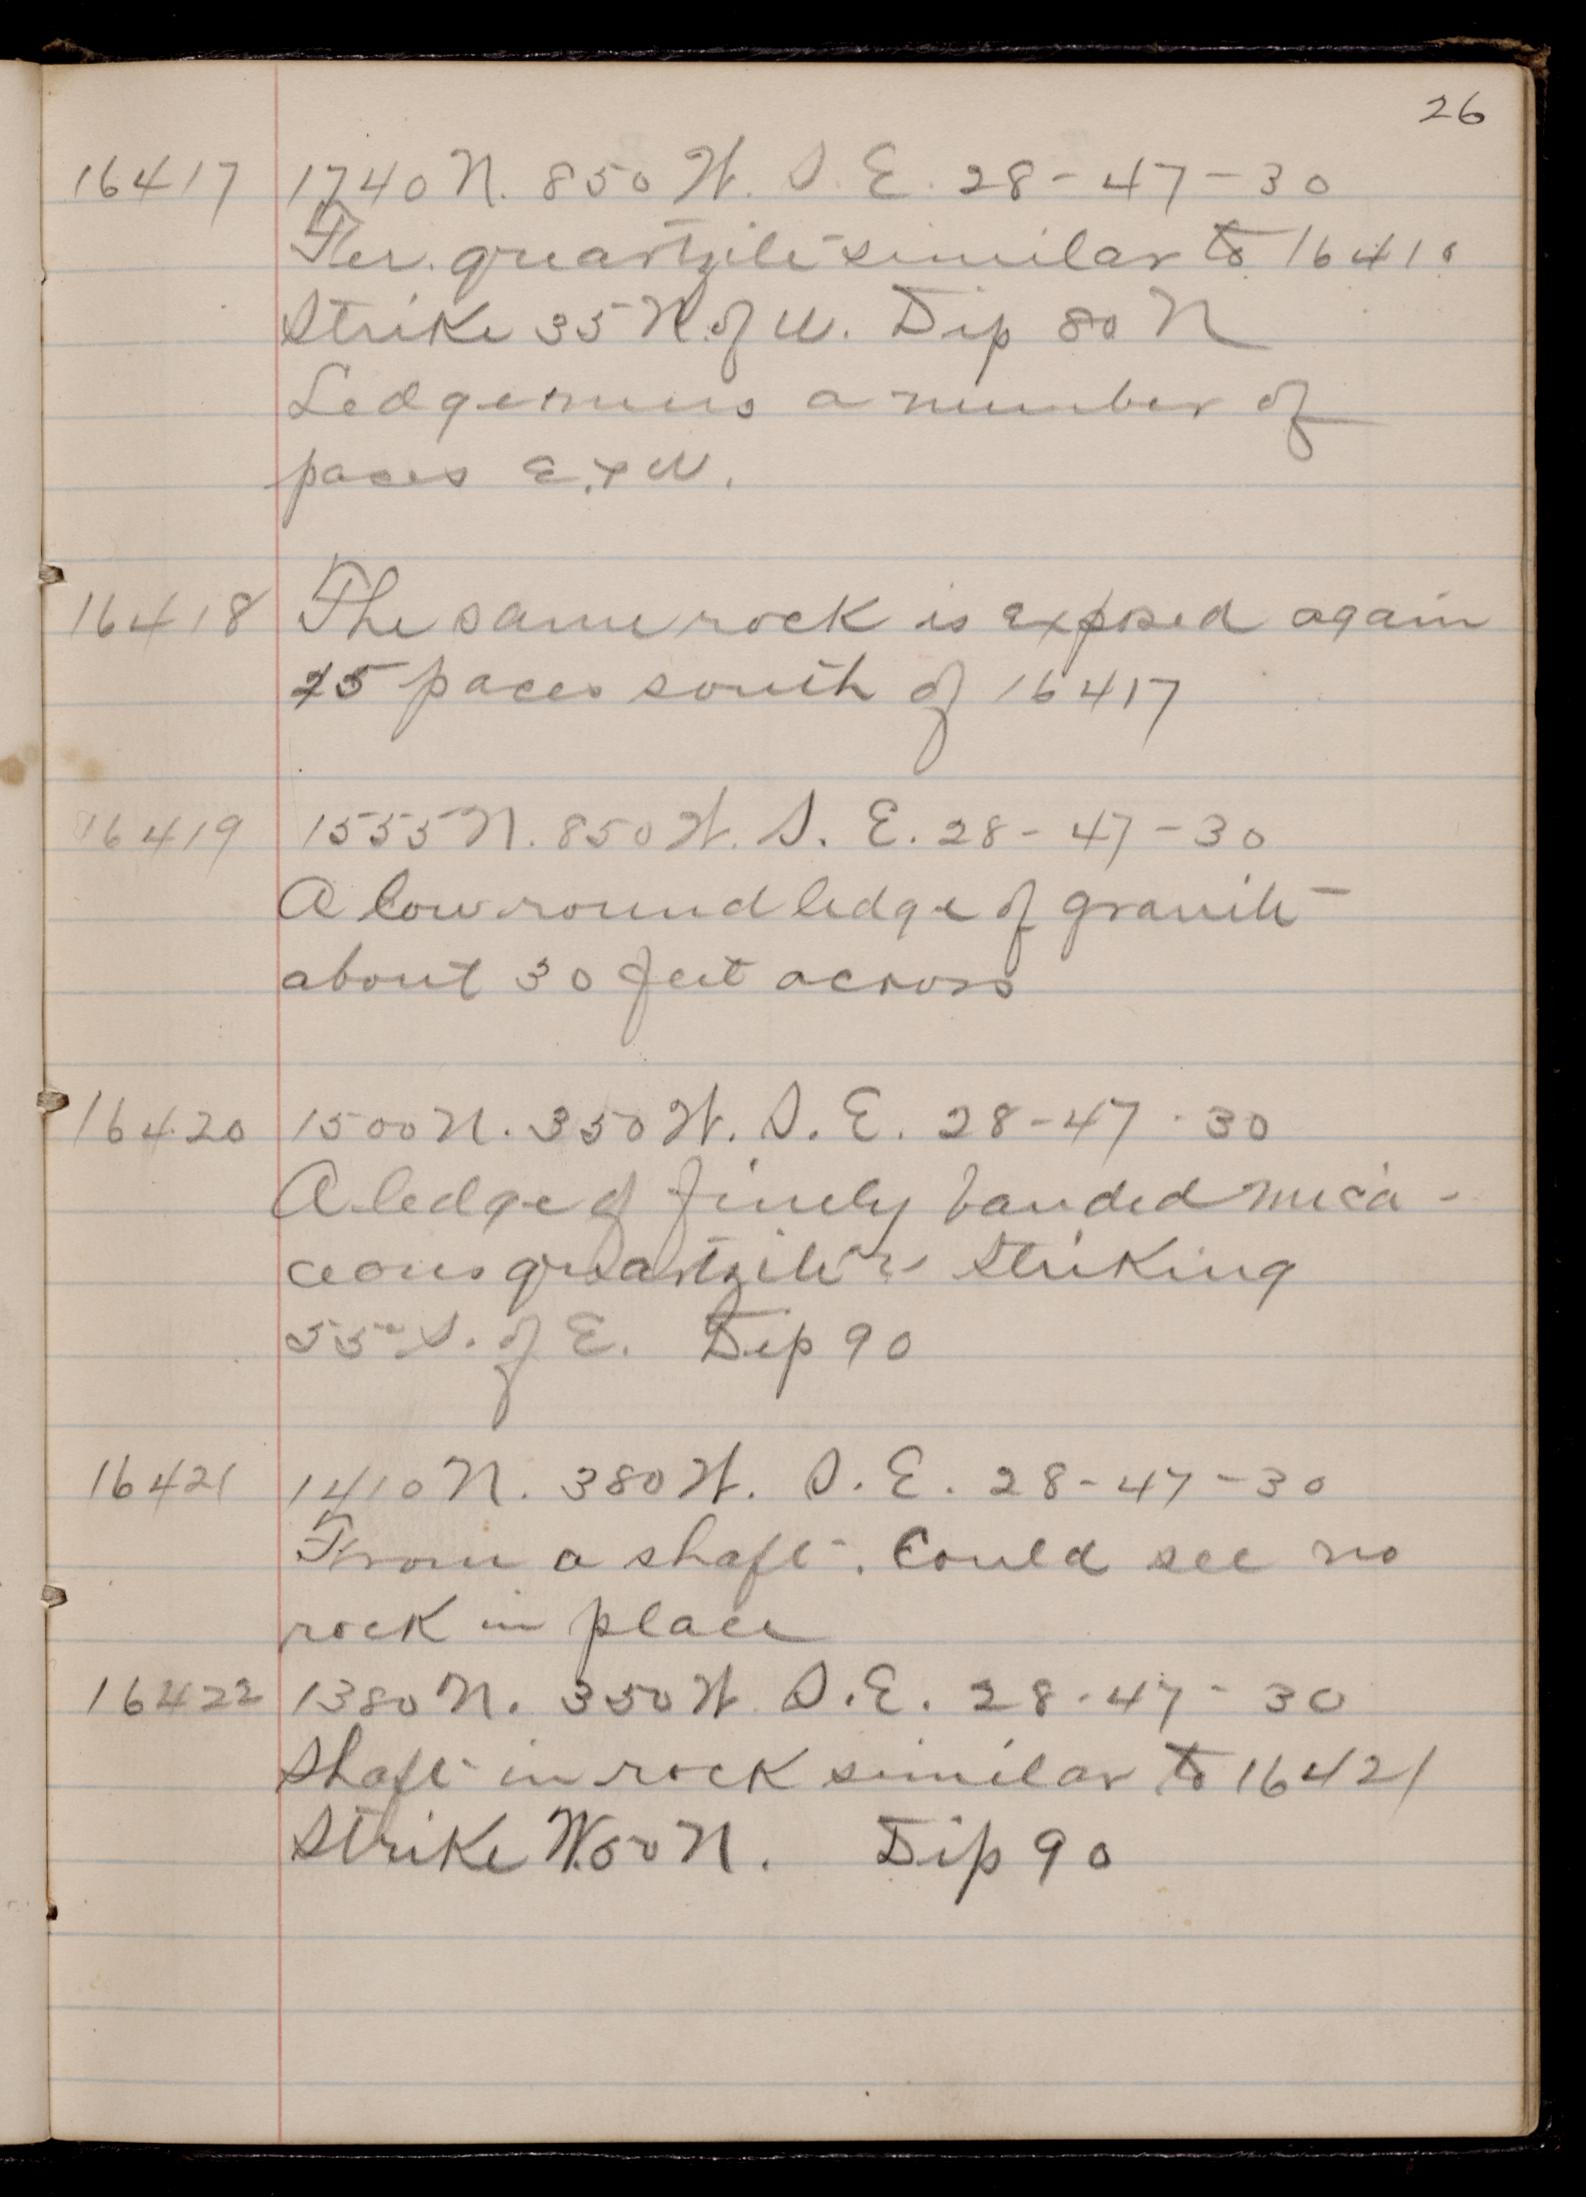 26
16417 1740 N. 850 W. S. E. 28-47-30
Fer. quartzite similar to 16410
Strike 35 N. of W. Dip 80 N
Ledge runs a number of
paces E. + W.
16418 The same rock is exposed again
25 paces south of 16417
16419 1555 N. 850 W. S. E. 28-47-30
A low round ledge of granite
about 30 feet across
16420 1500 N. 350 W. S. E. 28-47-30
A ledge of finely banded mica-
ceous quartzite is striking
55° S. of E. Dip 90
16421 1410 N. 380 W. S. E. 28-47-30
From a shaft. Could see no
rock in place
16422 1380 N. 350 W. S. E. 28-47-30
Shaft in rock similar to 16421
Strike W. 50 N. Dip 90